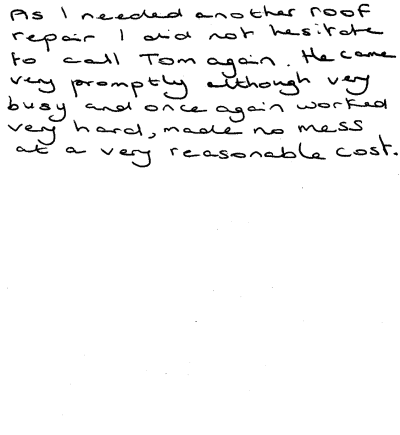 As I needed another roof
repair I did not hesitate
to call Tom again. He came
very promptly although very
busy and once again worked
very hard, made no mess
at a very reasonable cost.